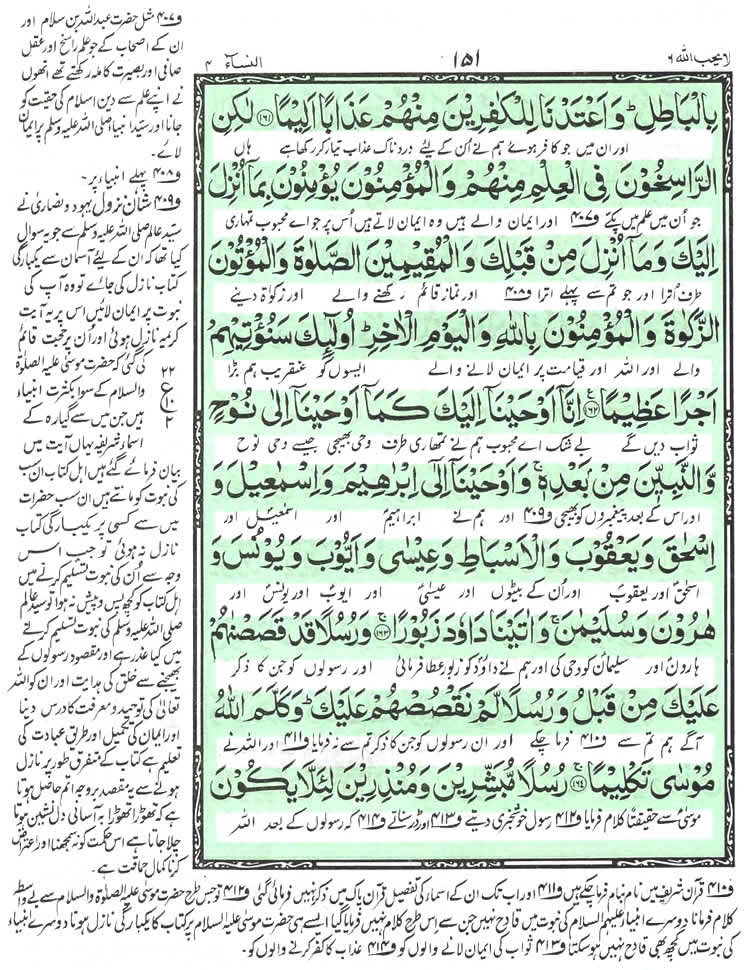 لا یحب اللہ ۶
۱۵۱
النسآء ۴
بِالْبَاطِلِ ؕ وَ اَعْتَدْنَا لِلْكٰفِرِیْنَ مِنْهُمْ عَذَابًا اَلِیْمًا ﴿۱۶۱﴾ لٰكِنِ
اور ان میں جو کافر ہوئے ہم نے اُن کے لئے دردناک عذاب تیار کر رکھا ہے ہاں
الرّٰسِخُوْنَ فِی الْعِلْمِ مِنْهُمْ وَ الْمُؤْمِنُوْنَ یُؤْمِنُوْنَ بِمَاۤ اُنْزِلَ
جو اُن میں علم میں پکے ف۴۰۷ اور ایمان والے ہیں وہ ایمان لاتے ہیں اُس پر جو اے محبوب تمہاری
اِلَیْكَ وَ مَاۤ اُنْزِلَ مِنْ قَبْلِكَ وَ الْمُقِیْمِیْنَ الصَّلٰوةَ وَ الْمُؤْتُوْنَ
طرف اُترا اور جو تم سے پہلے اترا ف۴۰۸ اور نماز قائم رکھنے والے اور زکوٰة دینے
الزَّكٰوةَ وَ الْمُؤْمِنُوْنَ بِاللّٰهِ وَ الْیَوْمِ الْاٰخِرِ ؕ اُولٰٓىِٕكَ سَنُؤْتِیْهِمْ
والے اور اللہ اور قیامت پر ایمان لانے والے ایسوں کو عنقریب ہم بڑا
اَجْرًا عَظِیْمًا ﴿۱۶۲﴾ اِنَّاۤ اَوْحَیْنَاۤ اِلَیْكَ كَمَاۤ اَوْحَیْنَاۤ اِلٰی نُوْحٍ
ثواب دیں گے بے شک اے محبوب ہم نے تمھاری طرف وحی بھیجی جیسے وحی نوح
وَّ النَّبِیّٖنَ مِنْۢ بَعْدِهٖ ۚ وَ اَوْحَیْنَاۤ اِلٰۤی اِبْرٰهِیْمَ وَ اِسْمٰعِیْلَ وَ
اور اس کے بعد پیغمبروں کو بھیجی ف۴۰۹ اور ہم نے ابراہیم اور اسمٰعیل اور
اِسْحٰقَ وَ یَعْقُوْبَ وَ الْاَسْبَاطِ وَ عِیْسٰی وَ اَیُّوْبَ وَ یُوْنُسَ وَ
اسحٰق اور یعقوب اور اُن کے بیٹوں اور عیسیٰ اور ایوب اور یونس اور
هٰرُوْنَ وَ سُلَیْمٰنَ ۚ وَ اٰتَیْنَا دَاوٗدَ زَبُوْرًا ﴿۱۶۳﴾ وَ رُسُلًا قَدْ قَصَصْنٰهُمْ
ہارون اور سلیمان کو وحی کی اور ہم نے داؤد کو زبور عطا فرمائی اور رسولوں کو جن کا ذکر
عَلَیْكَ مِنْ قَبْلُ وَ رُسُلًا لَّمْ نَقْصُصْهُمْ عَلَیْكَ ؕ وَ كَلَّمَ اللّٰهُ
آگے ہم تم سے ف۴۱۰ فرما چکے اور ان رسولوں کو جن کا ذکر تم سے نہ فرمایا ف۴۱۱ اور اللہ نے
مُوْسٰی تَكْلِیْمًا ﴿۱۶۴﴾ رُسُلًا مُّبَشِّرِیْنَ وَ مُنْذِرِیْنَ لِئَلَّا یَكُوْنَ
موسیٰ سے حقیقتاً کلام فرمایا ف۴۱۲ رسول خوشخبری دیتے ف۴۱۳ اور ڈر سناتے ف۴۱۴ کہ رسولوں کے بعد اللہ
ف۴۰۷ مثل حضرت عبداللہ بن سلام اور
ان کے اصحاب کے جو علم راسخ اور عقل
صافی اور بصیرت کاملہ رکھتے تھے انھوں
نے اپنے علم سے دین اسلام کی حقیت کو
جانا اور سیّد انبیاء صلی اللہ علیہ وسلم پر ایمان
لائے۔
ف۴۰۸ پہلے انبیاء پر۔
ف۴۰۹ شان نزول یہود و نصاریٰ نے
سیّد عالم صلی اللہ علیہ وسلم سے جو یہ سوال
کیا تھا کہ ان کے لئے آسمان سے یکبارگی
کتاب نازل کی جائے تو وہ آپ کی
نبوت پر ایمان لائیں اس پر یہ آیت
کریمہ نازل ہوئی اور اُن پر حجت قائم
کی گئی کہ حضرت موسیٰ علیہ الصلوٰة
والسلام کے سوا بکثرت انبیاء
ہیں جن میں سے گیارہ کے
اسماء شریفہ یہاں آیت میں
بیان فرمائے گئے ہیں اہل کتاب ان سب
کی نبوت کو مانتے ہیں ان سب حضرات
میں سے کسی پر یکبارگی کتاب
نازل نہ ہوئی تو جب اس
وجہ سے اُن کی نبوت تسلیم کرنے میں
اہل کتاب کو کچھ پس و پیش نہ ہوا تو سید عالم
صلی اللہ علیہ وسلم کی نبوت تسلیم کرنے
میں کیا عذر ہے اور مقصود رسولوں کے
بھیجنے سے خلق کی ہدایت اور ان کو اللہ
تعالیٰ کی توحید و معرفت کا درس دینا
اور ایمان کی تکمیل اور طرق عبادت کی
تعلیم ہے کتاب کے متفرق طور پر نازل
ہونے سے یہ مقصد بروجہ اتم حاصل ہوتا
ہے کہ تھوڑا تھوڑا بہ آسانی دل نشین ہوتا
چلا جاتا ہے اس حکمت کو نہ سمجھنا اور اعتراض
کرنا کمال حماقت ہے۔
۲۲
ع
۲
ف۴۱۰ قرآن شریف میں نام بنام فرما چکے ہیں ف۴۱۱ اور اب تک ان کے اسماء کی تفصیل قرآن پاک میں ذکر نہیں فرمائی گئی ف۴۱۲ تو جس طرح حضرت موسیٰ علیہ الصلوٰة والسلام سے بے واسطہ
کلام فرمانا دوسرے انبیاء علیہم السلام کی نبوت میں قادح نہیں جن سے اس طرح کلام نہیں فرمایا گیا ایسے ہی حضرت موسیٰ علیہ السلام پر کتاب کا یکبارگی نازل ہونا دوسرے انبیاء
کی نبوت میں کچھ بھی قادح نہیں ہو سکتا ف۴۱۳ ثواب کی ایمان لانے والوں کو ف۴۱۴ عذاب کا کفر کرنے والوں کو۔